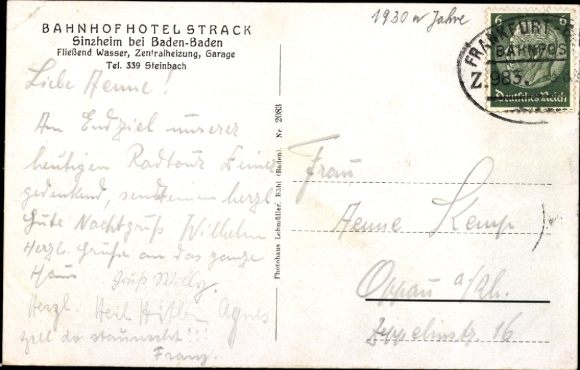 BAHNHOFHOTEL STRACK
Sinzheim bei Baden-Baden
Fließend Wasser, Zentralheizung, Garage
Tel. 339 Steinbach
Liebe Aenne!
Am Endziel unserer
heutigen Radtour Deiner
gedenkend, senden herzl.
Gute Nachtgruß Wilhelm
Herzl. Grüße an das ganze
Haus
Gruß Willy
Herzl. Heil Hitler Agnes
gell do staunscht!!!
Franz.
Photohaus Lohmüller, Bühl (Baden). Nr. 2083
1930er Jahre
6 6
Deutsches Reich
FRANKFURT
BAHNPOS
Z. 983.
Frau
Aenne Kemp
Oppau a/Rh.
Zeppelinstr. 16